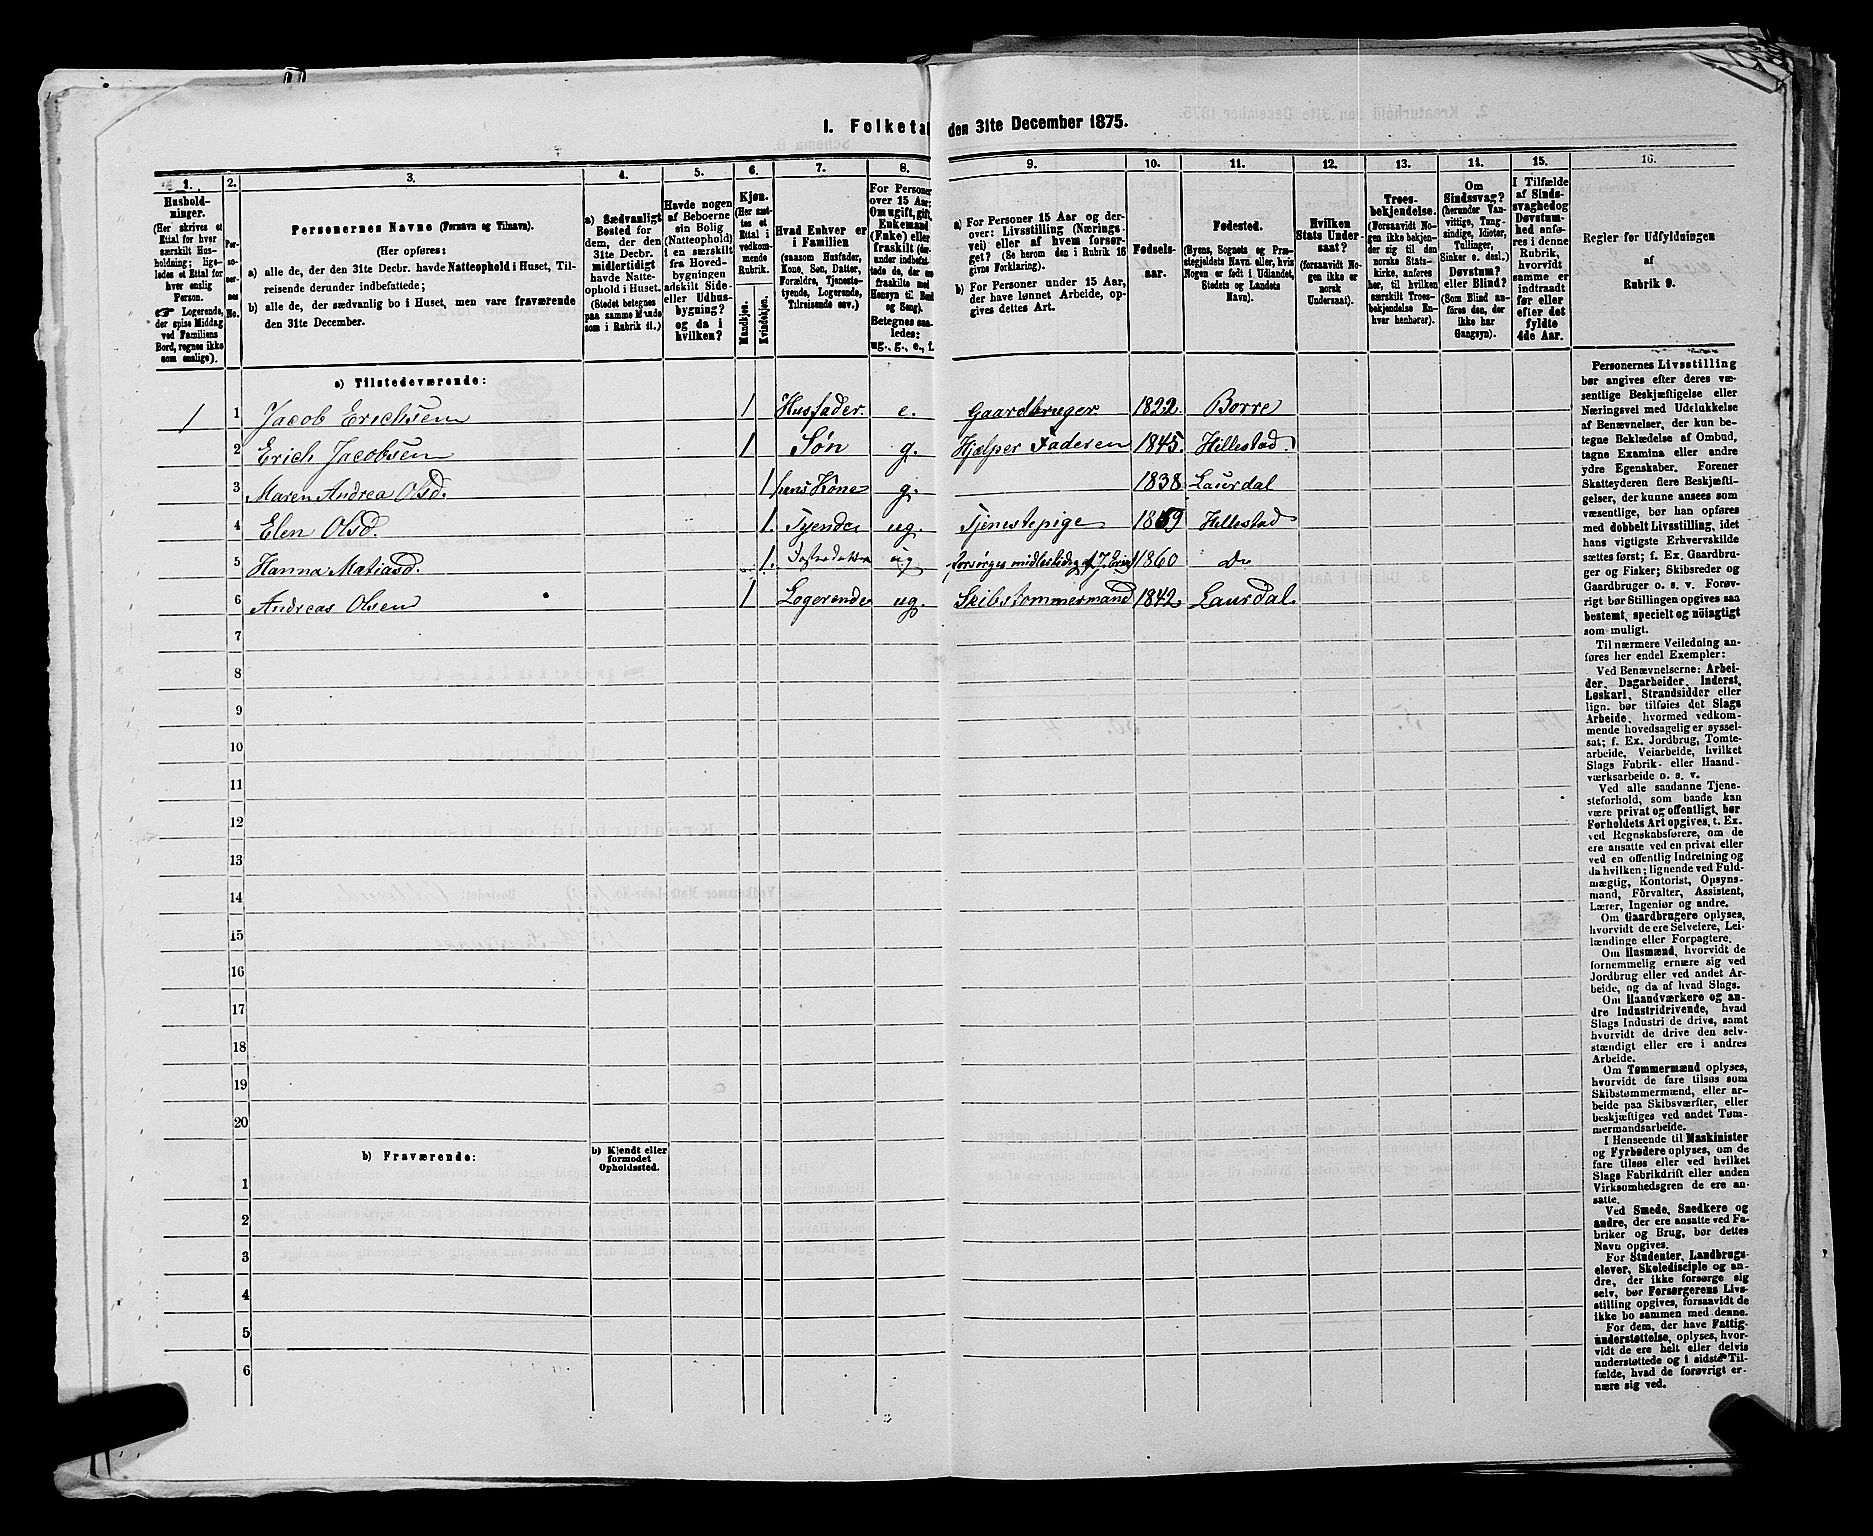 I. Folketal den 31te December 1875.
1. 2. 3. 4. 5. 6. 7. 8. 9. 10. 11. 12. 13. 14. 15. 16.
Husholdninger.
(Her skrives et
Ettal for hver
særskilt Husholdning;
ligeledes et Ettal for
hver enslig
Person.
☞ Logerende,
der spise Middag
ved Familiens
Bord, regnes ikke
som enslige).
Personernes No.
Personernes Navne (Fornavn og Tilnavn).
(Her opføres:
a) alle de, der den 31te Decbr. havde Natteophold i Huset, Tilreisende derunder indbefattede;
b) alle de, der sædvanlig bo i Huset, men vare fraværende
den 31te December.
a) Sædvanligt
Bosted for
dem, der den
31te Decbr.
midlertidigt
havde Natteophold i Huset.
(Stedet betegnes
paa samme Maade
som i Rubrik 11.)
Havde nogen
af Beboerne
sin Bolig
(Natteophold)
i en særskilt
fra Hovedbygningen
adskilt Side-
eller Udhusbygning?
og da i
hvilken?
Kjøn.
(Her sættes et
Ettal i
vedkommende
Rubrik.
Mandkjøn.
Kvindekjøn.
Hvad Enhver er
i Familien
(saasom Husfader,
Kone, Søn, Datter,
Forældre, Tjenestetyende, Logerende,
Tilreisende osv.)
For Personer
over 15 Aar:
Om ugift, gift,
Enkemand
(Enke) eller
fraskilt
Betegnes saaledes:
ug., g., e., f.
a) For Personer 15 Aar og derover: Livsstilling (Næringsvei) eller af hvem forsørget? (Se herom den i Rubrik 16
givne Forklaring).
b) For Personer under 15 Aar,
der have lønnet Arbeide, opgives dettes Art.
Fødselsaar.
Fødested.
(Byens, Sognets og Præstegjeldets Navn, eller, hvis
Nogen er født i Udlandet,
Stedets og Landets
Navn).
Hvilken
Stats Undersaat?
(forsaavidt Nogen ikke er
norsk
Undersaat).
Troesbekjendelse.
(Forsaavidt Nogen ikke bekjender sig til den
norske Statskirke, anføres
her, til hvilken
særskilt Troesbekjendelse Enhver henhører).
Om
Sindssvag?
(herunder Vanvittige, Tungsindige, Idioter,
Tullinger,
Sinker o. desl.)
Døvstum?
eller Blind?
(Som Blind anføres den, der
ikke har
Gangsyn).
I Tilfælde
af Sindssvaghed og
Døvstumhed anføres i denne
Rubrik,
hvorvidt
samme er
indtraadt
før eller
efter det
fyldte
4de Aar.
Regler for Udfyldningen
af
Rubrik 9.
a) Tilstedeværende:
1 1 Jacob Erichsen 1 Husfader. e. Gaardbruger 1822. Borre
2 Erich Jacobsen 1 Søn g. Hjælper Faderen 1845. Hellestad.
3 Maren Andrea Olsd. 1 hans Kone g. 1838 Laurdal
4 Elen Olsd. 1. Tyende ug. Tjenestepige 1859 Hellestad
5 Hanna Matiasd. 1. ug forsørges midlertidig af J. 1860 Do
6 Andreas Olsen 1 Logerende ug. Skibstømmermand 1842 Laurdal.
7
8
9
10
11
12
13
14
15
16
17
18
19
20
b) Fraværende:
b) Kjendt eller
formodet
Opholdssted.
1
2
3
4
5
6
Personernes Livsstilling
bør angives efter deres væsentlige Beskjæftigelse eller
Næringsvei med Udelukkelse
af Benævnelser, der kun betegne Beklædelse af Ombud,
tagne Examina eller andre
ydre Egenskaber. Forener
Skatteyderen flere Beskjæftigelser, der kunne ansees som
væsentlige, bør han opføres
med dobbelt Livsstilling, idet
hans vigtigste Erhvervskilde
sættes først; f. Ex. Gaardbruger og Fisker; Skibsreder og
Gaardbruger o. s. v. Forøvrigt bør Stillingen opgives saa
bestemt, specielt og nöiagtigt
som muligt.
Til nærmere Veiledning anføres her endel Exempler:
Ved Benævnelserne: Arbeider, Dagarbeider, Inderst,
Løskarl, Strandsidder eller
lign. bør tilføies det Slags
Arbeide, hvormed vedkommende hovedsagelig er sysselsat; f. Ex. Jordbrug, Tomtearbeide, Veiarbeide, hvilket
Slags Fabrik- eller Haandværksarbeide o. s. v.
Ved alle saadanne Tjenesteforhold, som baade kan
være privat og offentligt, bør
Forholdets Art opgives, t. Ex.
ved Regnskabsførere, om de
ere ansatte ved en privat eller
ved en offentlig Indretning og
da hvilken; lignende ved Fuldmægtig, Kontorist, Opsynsmand, Forvalter, Assistent,
Lærer, Ingeniør og andre.
Om Gaardbrugere oplyses,
hvorvidt de ere Selveiere, Leilændinge eller Forpagtere.
Om Husmænd, hvorvidt de
fornemmelig ernære sig ved
Jordbrug eller ved andet Arbeide, og da af hvad Slags.
Om Haandværkere og andre Industridrivende, hvad
Slags Industri de drive, samt
hvorvidt de drive den selvstændigt eller ere i andres
Arbeide.
Om Tømmermænd oplyses,
hvorvidt de fare tilsøs som
Skibstømmermænd, eller arbeide paa Skibsværfter, eller
beskjæftiges ved andet Tømmermandsarbeide.
I Henseende til Maskinister
og Fyrbødere oplyses, om de
fare tilsøs eller ved hvilket
Slags Fabrikdrift eller anden
Virksomhedsgren de ere ansatte.
Ved Smede, Snedkere og
andre, der ere ansatte ved Fabriker og Brug, bør dettes
Navn opgives.
For Studenter, Landbrugselever, Skoledisciple og andre, der ikke forsørge sig
selv, bør Forsørgerens Livsstilling opgives, forsaavidt de
ikke bo sammen med denne.
For dem, der have Fattigunderstøttelse, oplyses, hvorvidt de ere helt eller delvis
understøttede og i sidste Tilfælde, hvad de forøvrigt ernære sig ved.